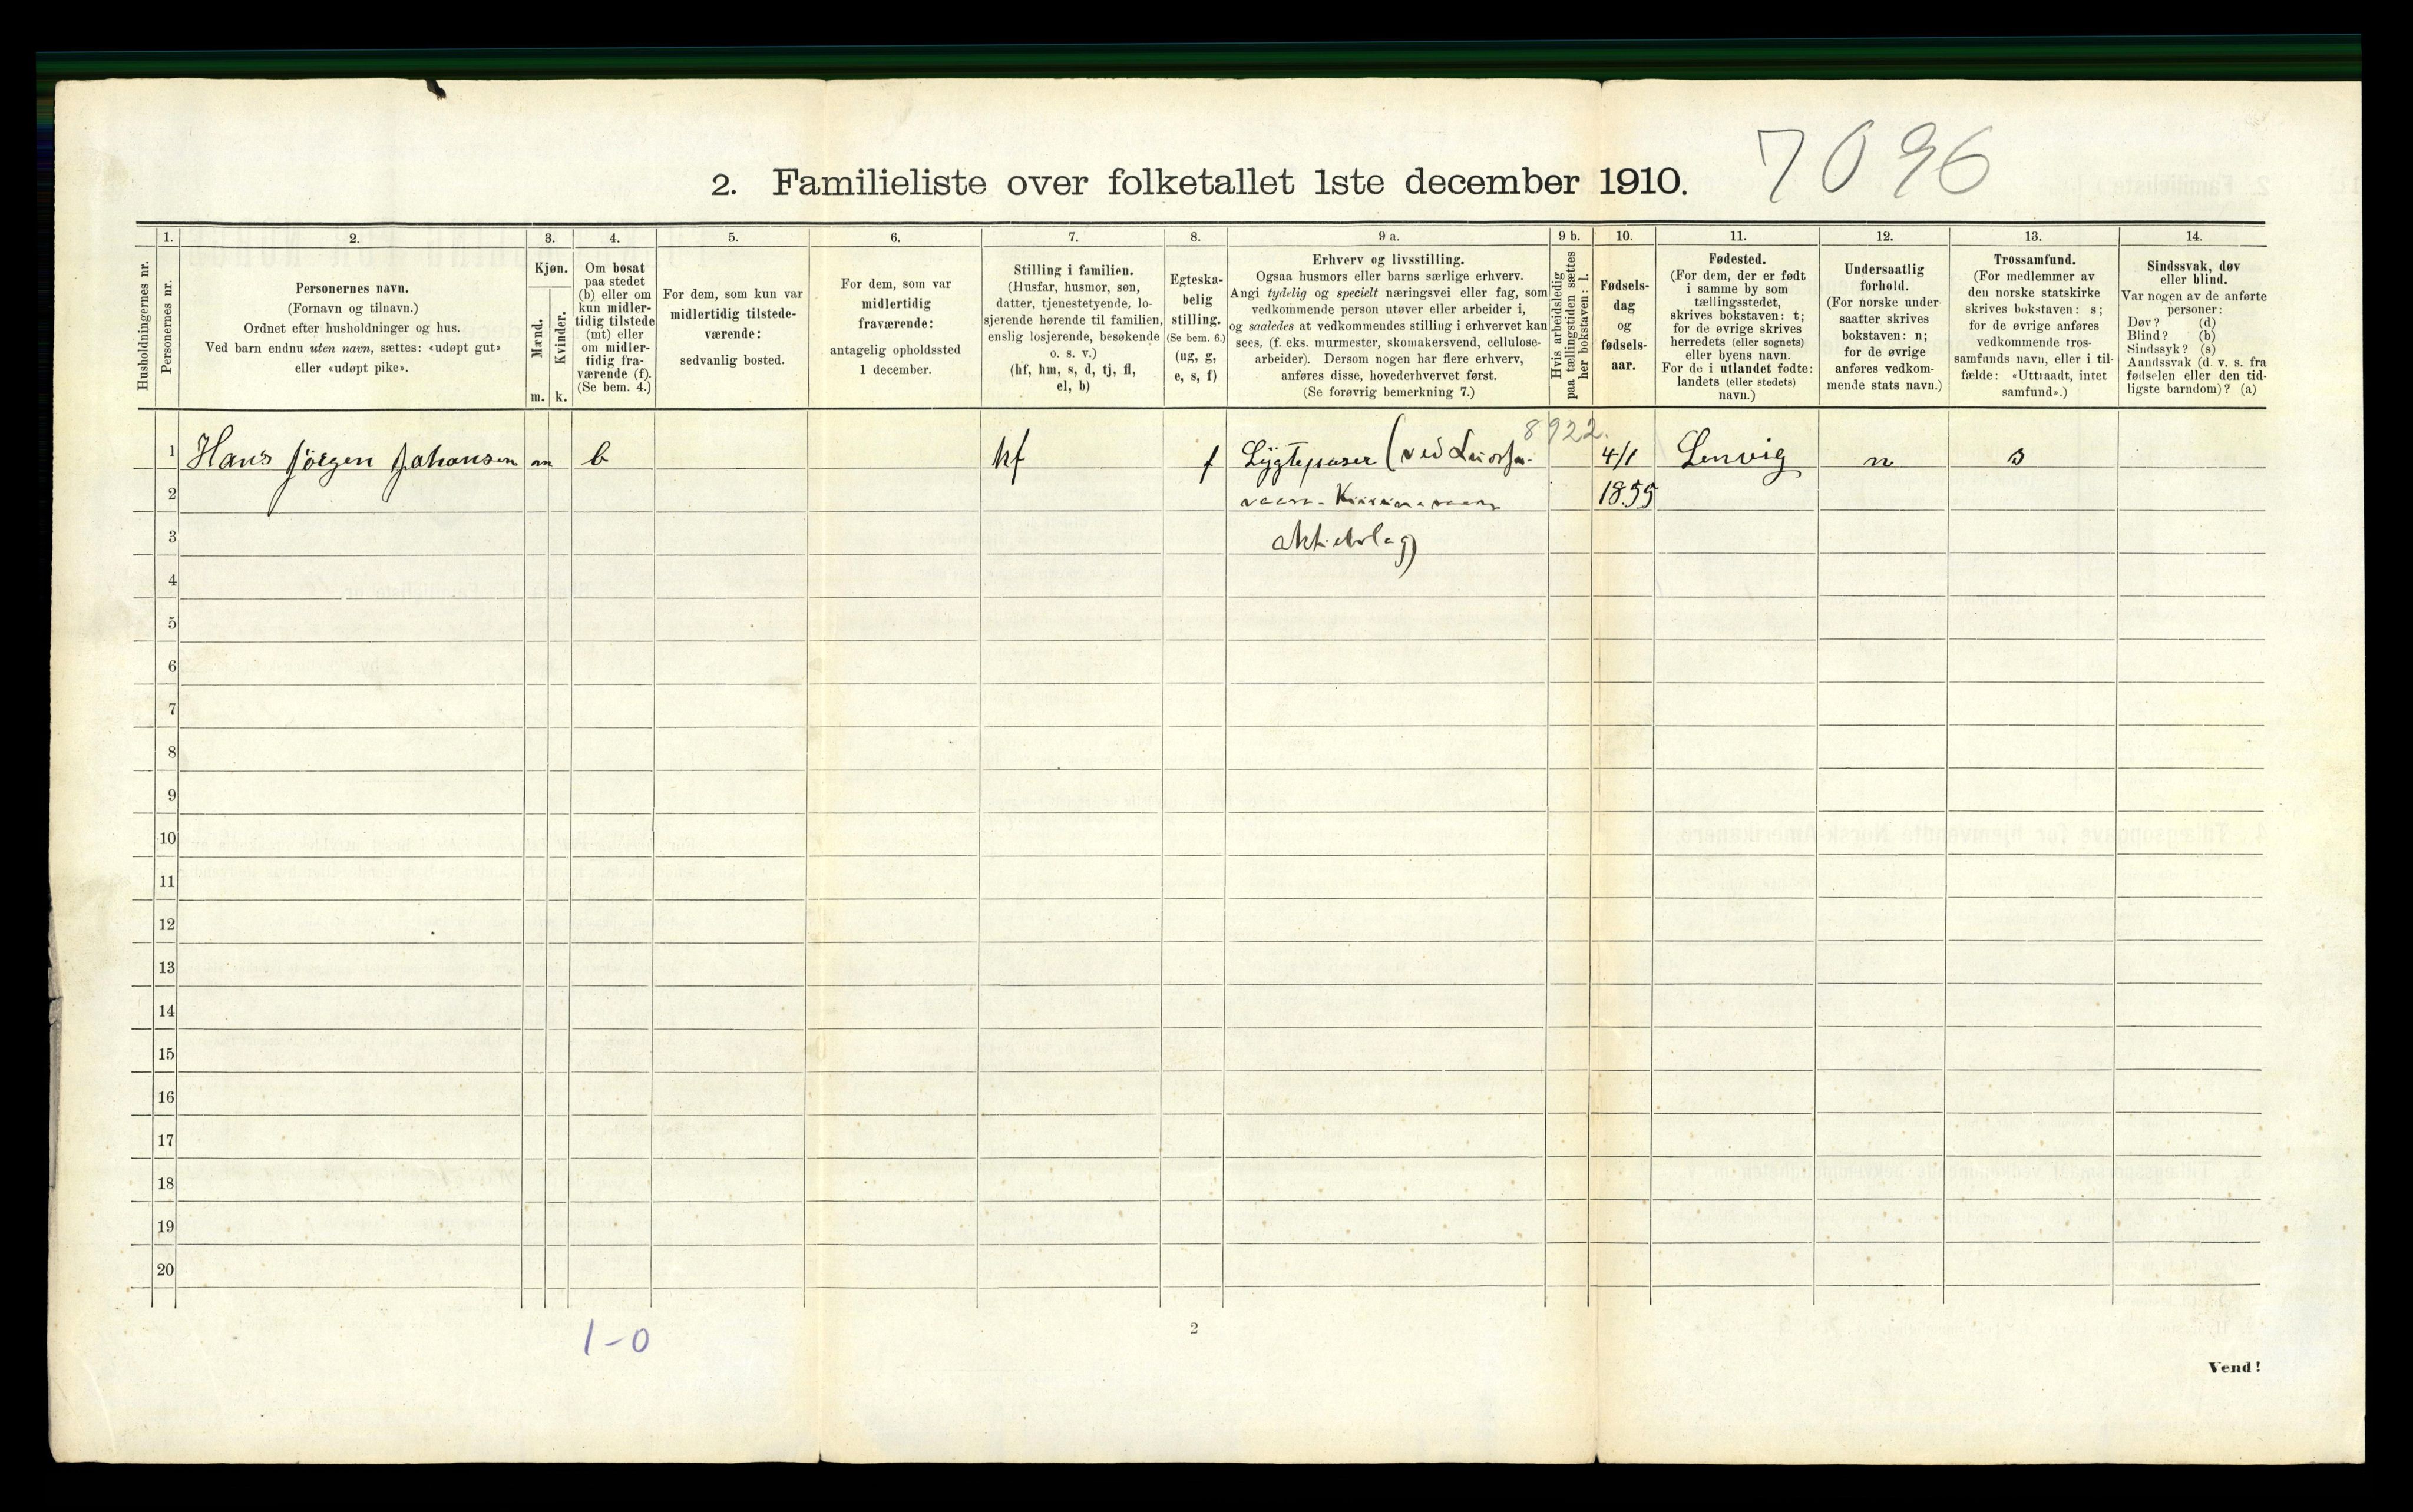 7096
2. Familieliste over folketallet 1ste december 1910.
Husholdningernes nr.
1.
Personernes nr.
2.
Personernes navn.
(Fornavn og tilnavn.)
Ordnet efter husholdninger og hus.
Ved barn endnu uten navn, sættes: «udøpt gut»
eller «udøpt pike».
3.
Kjøn.
Mænd.
Kvinder.
m. k.
4.
Om bosat
paa stedet
(b) eller om
kun midler-
tidig tilstede
(mt) eller
om midler-
tidig fra-
værende (f).
(Se bem. 4.)
5.
For dem, som kun var
midlertidig tilstede-
værende:
sedvanlig bosted.
6.
For dem, som var
midlertidig
fraværende:
antagelig opholdssted
1 december.
7.
Stilling i familien.
(Husfar, husmor, søn,
datter, tjenestetyende, lo-
sjerende hørende til familien,
enslig losjerende, besøkende
o. s. v.)
(hf, hm, s, d, tj, fl,
el, b)
8.
Egteska-
belig
stilling.
(Se bem. 6.)
(ug, g,
e, s, f)
9 a.
Erhverv og livsstilling.
Ogsaa husmors eller barns særlige erhverv.
Angi tydelig og specielt næringsvei eller fag, som
vedkommende person utøver eller arbeider i,
og saaledes at vedkommendes stilling i erhvervet kan
sees, (f. eks. murmester, skomakersvend, cellulose-
arbeider). Dersom nogen har flere erhverv,
anføres disse, hovederhvervet først.
(Se forøvrig bemerkning 7.)
9 b.
Hvis arbeidsledig
paa tællingstiden sættes
her bokstaven: l.
10.
Fødsels-
dag
og
fødsels-
aar.
11.
Fødested.
(For dem, der er født
i samme by som
tællingsstedet,
skrives bokstaven: t;
for de øvrige skrives
herredets (eller sognets)
eller byens navn.
For de i utlandet fødte:
landets (eller stedets)
navn.)
12.
Undersaatlig
forhold.
(For norske under-
saatter skrives
bokstaven: n;
for de øvrige
anføres vedkom-
mende stats navn.)
13.
Trossamfund.
(For medlemmer av
den norske statskirke
skrives bokstaven: s;
for de øvrige anføres
vedkommende tros-
samfunds navn, eller i til-
fælde: «Uttraadt, intet
samfund».)
14.
Sindssvak, døv
eller blind.
Var nogen av de anførte
personer:
Døv? (d)
Blind? (b)
Sindssyk? (s)
Aandssvak (d. v. s. fra
fødselen eller den tid-
ligste barndom)? (a)
8922.
1 Hans Jörgen Johansen m b hf f Lygtepuser (ved 4/1 Lenvig n s
2 1855
3
4
5
6
7
8
9
10
11
12
13
14
15
16
17
18
19
20
1-0
2
Vend!